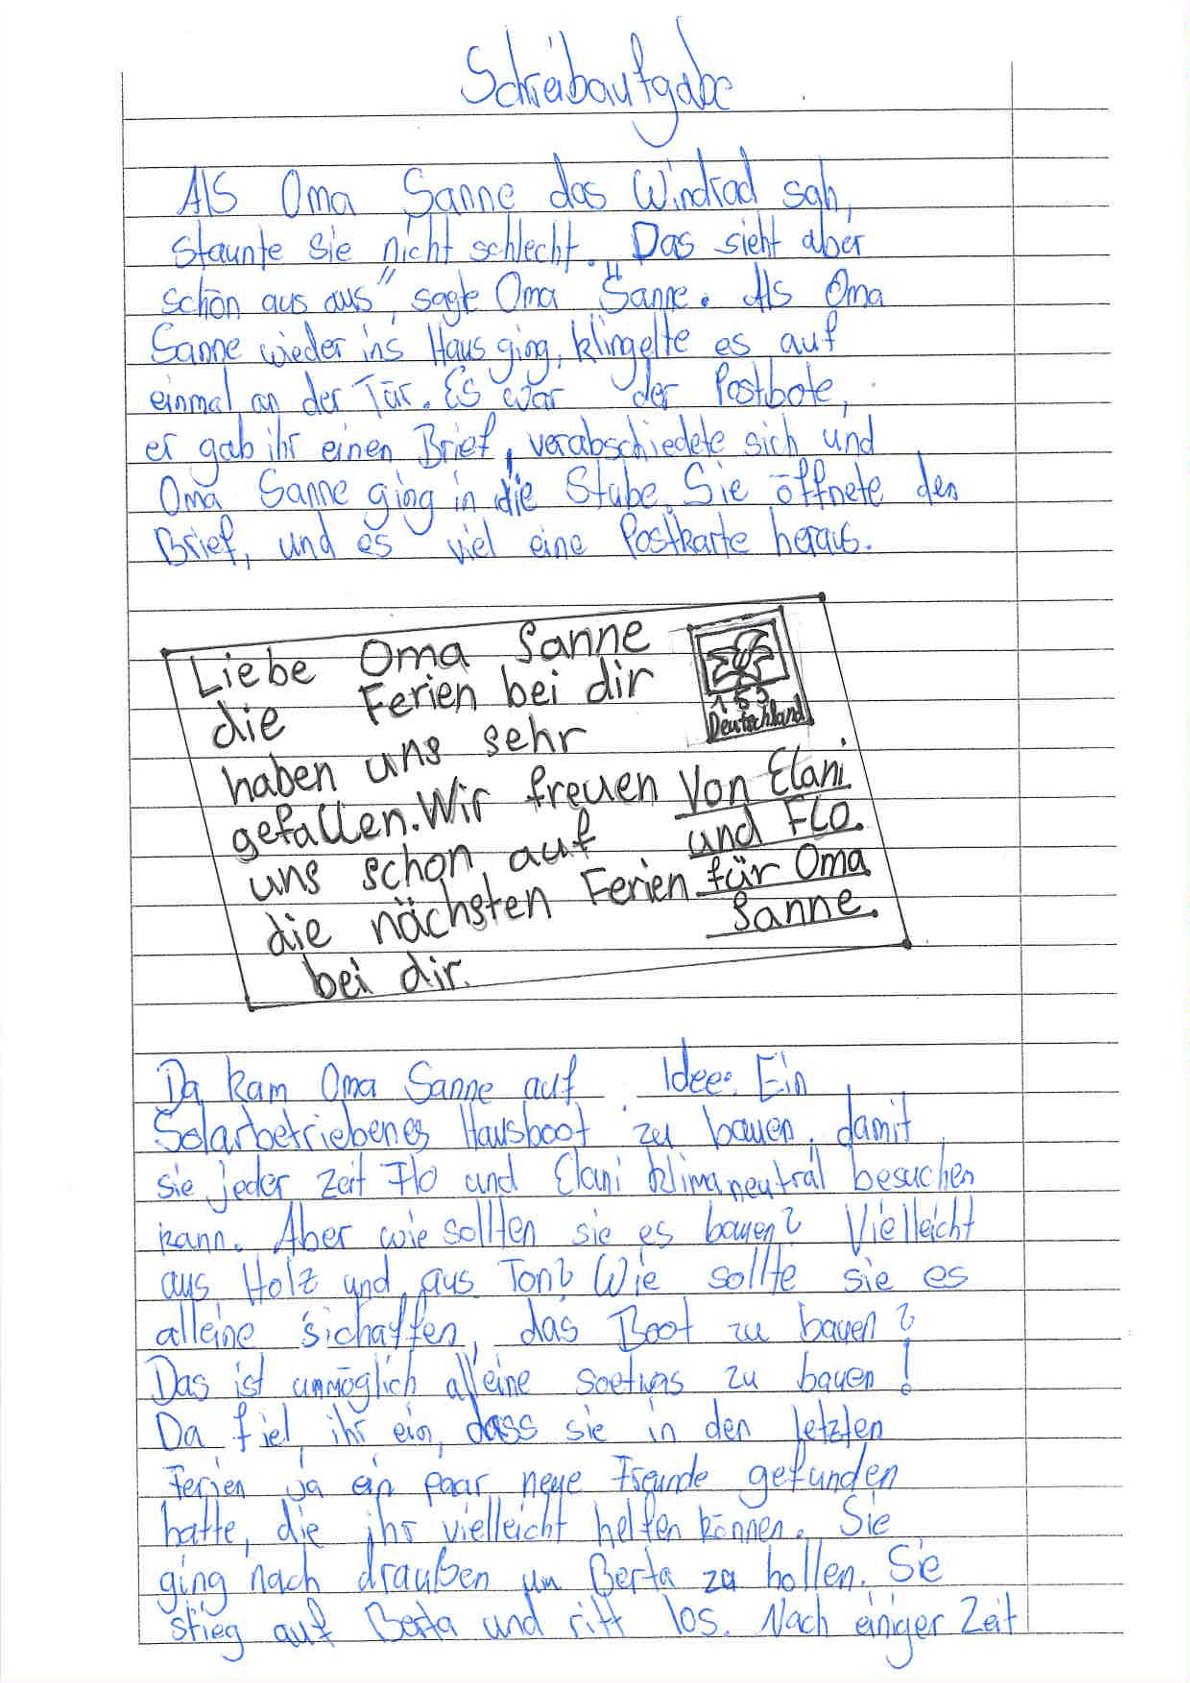 Schreibaufgabe
Als Oma Sanne das Windrad sah,
staunte sie nicht schlecht. Das sieht aber
schön aus aus", sagte Oma Sanne. Als Oma
Sanne wieder ins Haus ging, klingelte es auf
einmal an der Tür. Es war der Postbote,
er gab ihr einen Brief, verabschiedete sich und
Oma Sanne ging in die Stube. Sie öffnete den
Brief, und es viel eine Postkarte heraus.
Liebe Oma Sanne
die Ferien bei dir
haben uns sehr
gefallen. Wir freuen
uns schon auf
die nächsten Ferien
bei dir.
155
Deutschland
Von Elani
und Flo.
für Oma
Sanne.
Da kam Oma Sanne auf Idee: Ein
Solarbetriebenes Hausboot zu bauen, damit
sie jeder Zeit Flo und Elani klimaneutral besuchen
kann. Aber wie sollten sie es bauen? Vielleicht
aus Holz und aus Ton? Wie sollte sie es
alleine schaffen, das Boot zu bauen?
Das ist unmöglich alleine soetwas zu bauen!
Da fiel ihr ein, dass sie in den letzten
Ferien ja ein paar neue Freunde gefunden
hatte, die ihr vielleicht helfen können. Sie
ging nach draußen um Berta zu hollen. Sie
stieg auf Berta und ritt los. Nach einiger Zeit